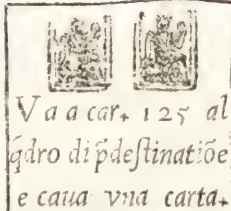 Va a car. 125 al
q̄dro di p̄deſtinatiōe
e caua vna carta.